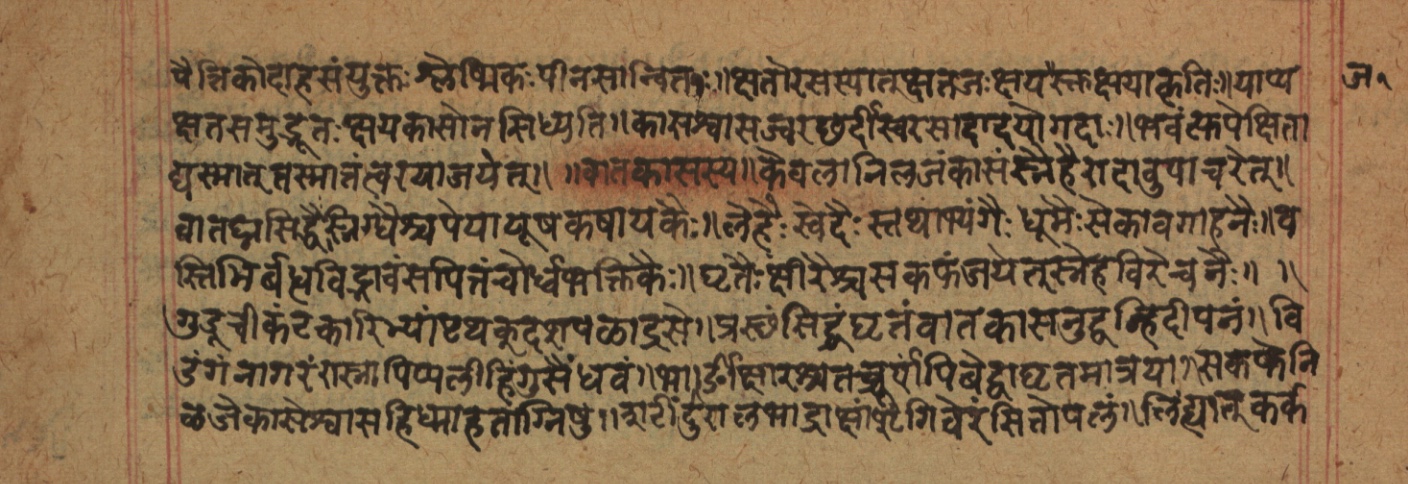 पैत्तिकोदाहसंयुक्तः श्लैष्मिकः पीनसान्वितः ॥ क्षतोरसस्यात्क्षतजः क्षयस्तु क्षयाकृतिः ॥ याप्य
क्षतसमुद्भूतः क्षयकासोनसिध्यति ॥ कासश्वासज्वरछर्दीस्वरसादादयोगदाः ॥ भवंत्युपेक्षिता
यस्मात्तस्मातंत्वरयाजयेत् ॥ ॥ वातकासस्य ॥ केवलानिलजंकासंस्नेहैरादावुपाचरेत् ॥
वातघ्नसिद्धैःस्निग्धैश्चपेयायूषकषायकैः ॥ लेहैः स्वेदैः स्तथाभ्यंगैः धूमैः सेकावगाहनैः ॥ ब
स्तिभिर्बधविड्वातंसपितंचोर्ध्वभक्तिकैः ॥ घृतैः क्षीरैश्चसकफंजयेत्स्नेहविरेचनैः ॥ ॥
गुडूचीकंटकारिभ्यांपृथकुदशपळाद्रसे ॥ प्रस्थंसिद्धंघृतंवातकासनुद्वन्हिदीपनं ॥ वि
डंगंनागरंरास्नापिप्पलीहिंगुसैंधवं ॥ भार्ङीक्षारश्चतच्चूर्णंपिबेद्वाघृतमात्रया ॥ सकफेनि
ळजेकासेश्वासहिध्माहताग्निषु ॥ शटींदुरालभाद्राक्षांशृंगिवेरंसितोपलं ॥ लिह्यात्कर्क